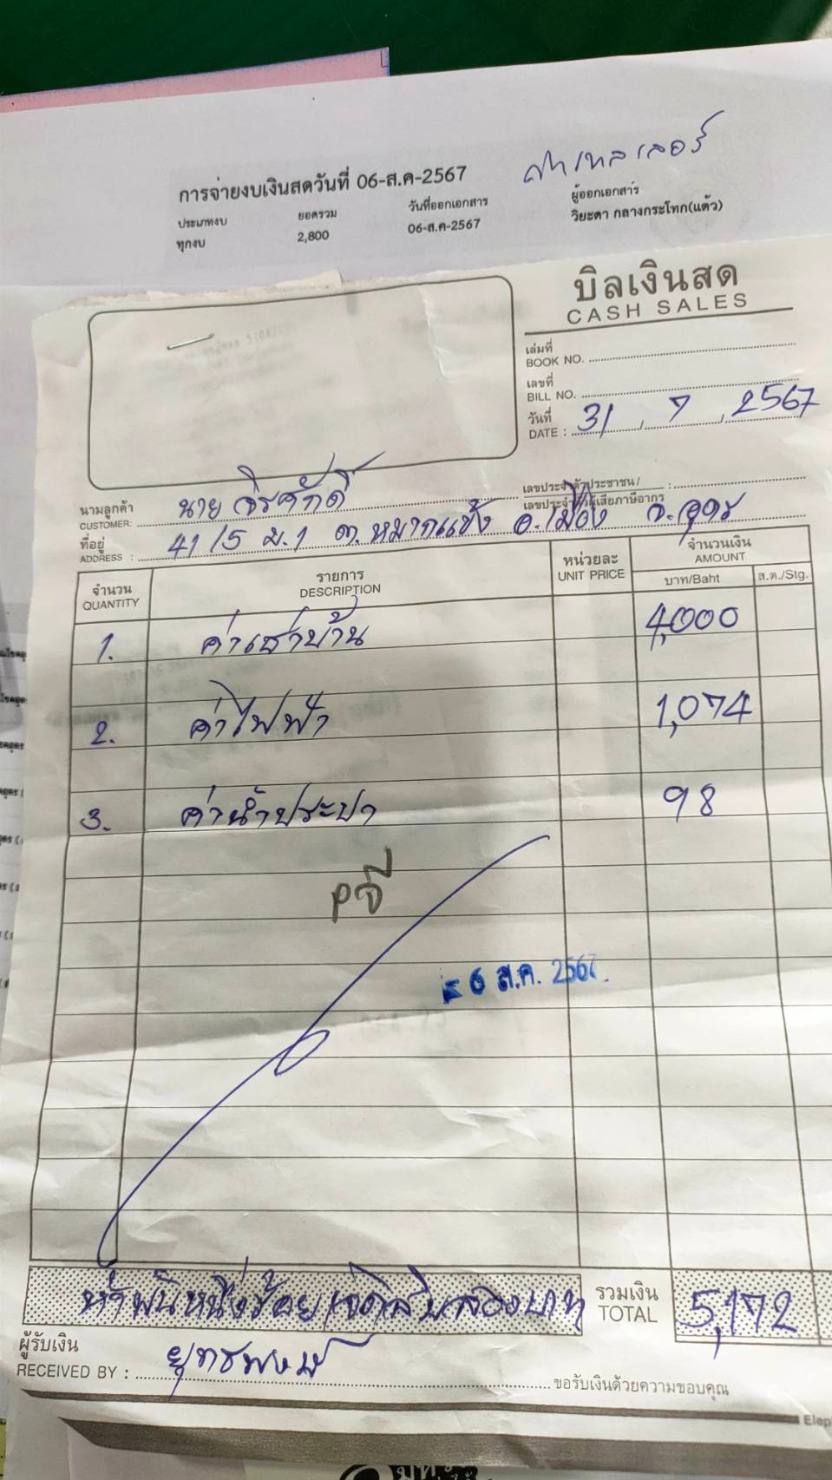 การจ่ายงบเงินสดวันที่ 06-ส.ค-2567
ประเภทงบ ยอดรวม วันที่ออกเอกสาร ผู้ออกเอกสาร
ทุกงบ 2,800 06-ส.ค-2567 วิยะดา กลางกระโทก(แต้ว)
บิลเงินสด
CASH SALES
เล่มที่
BOOK NO.
เลขที่
BILL NO.
วันที่
DATE : 31 , 7 , 2567
นามลูกค้า
CUSTOMER: นาย จิรศักดิ์
เลขประจำตัวประชาชน/
เลขประจำตัวผู้เสียภาษีอากร :
ที่อยู่
ADDRESS : 41/5 ม.1 ต.หมากแข้ง อ.เมือง จ.อุดร
จำนวน รายการ หน่วยละ จำนวนเงิน
QUANTITY DESCRIPTION UNIT PRICE AMOUNT
บาท/Baht ส.ต./Stg.
1. ค่าเช่าบ้าน 4,000
2. ค่าไฟฟ้า 1,074
3. ค่าน้ำประปา 98
6 ส.ค. 2567
ห้าพันหนึ่งร้อยเจ็ดสิบสองบาท รวมเงิน 5,172
TOTAL
ผู้รับเงิน
RECEIVED BY : ขอรับเงินด้วยความขอบคุณ